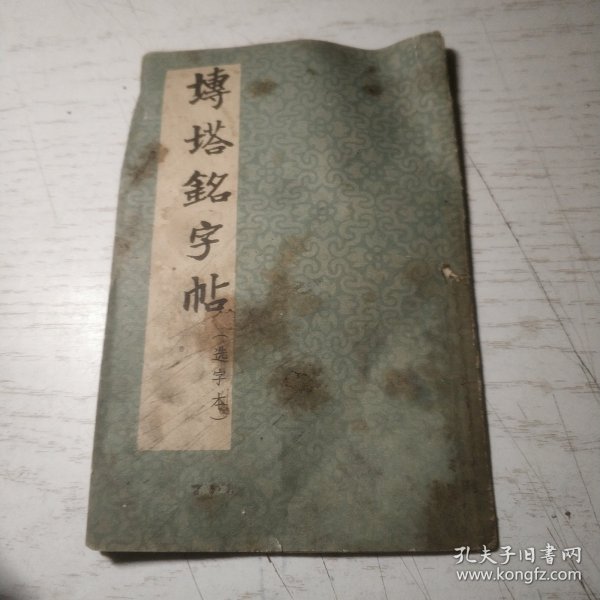 塼塔銘字帖
（选字本）
孔夫子旧書网
www.kongfz.com